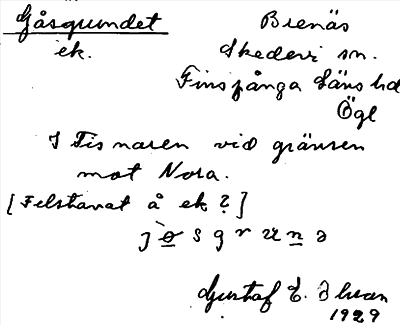 Gåsgrundet
ek.
Brenäs
Skedevi sn.
Finspånga läns hd
Ögl
I Tisnaren vid gränsen
mot Nora.
[Felstavat å ek ?]
Gustaf E.
1929